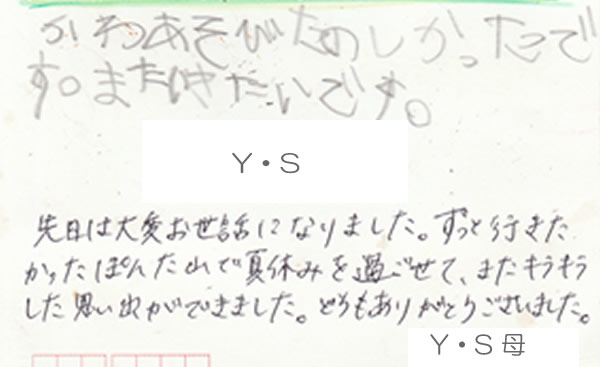 かわあそびたのしかったで
す。またいきたいです。
Y・S
先日は大変お世話になりました。ずっと行きた
かったぽんた山で夏休みを過ごせて、またキラキラ
した思い出ができました。どうもありがとうございました。
Y・S母